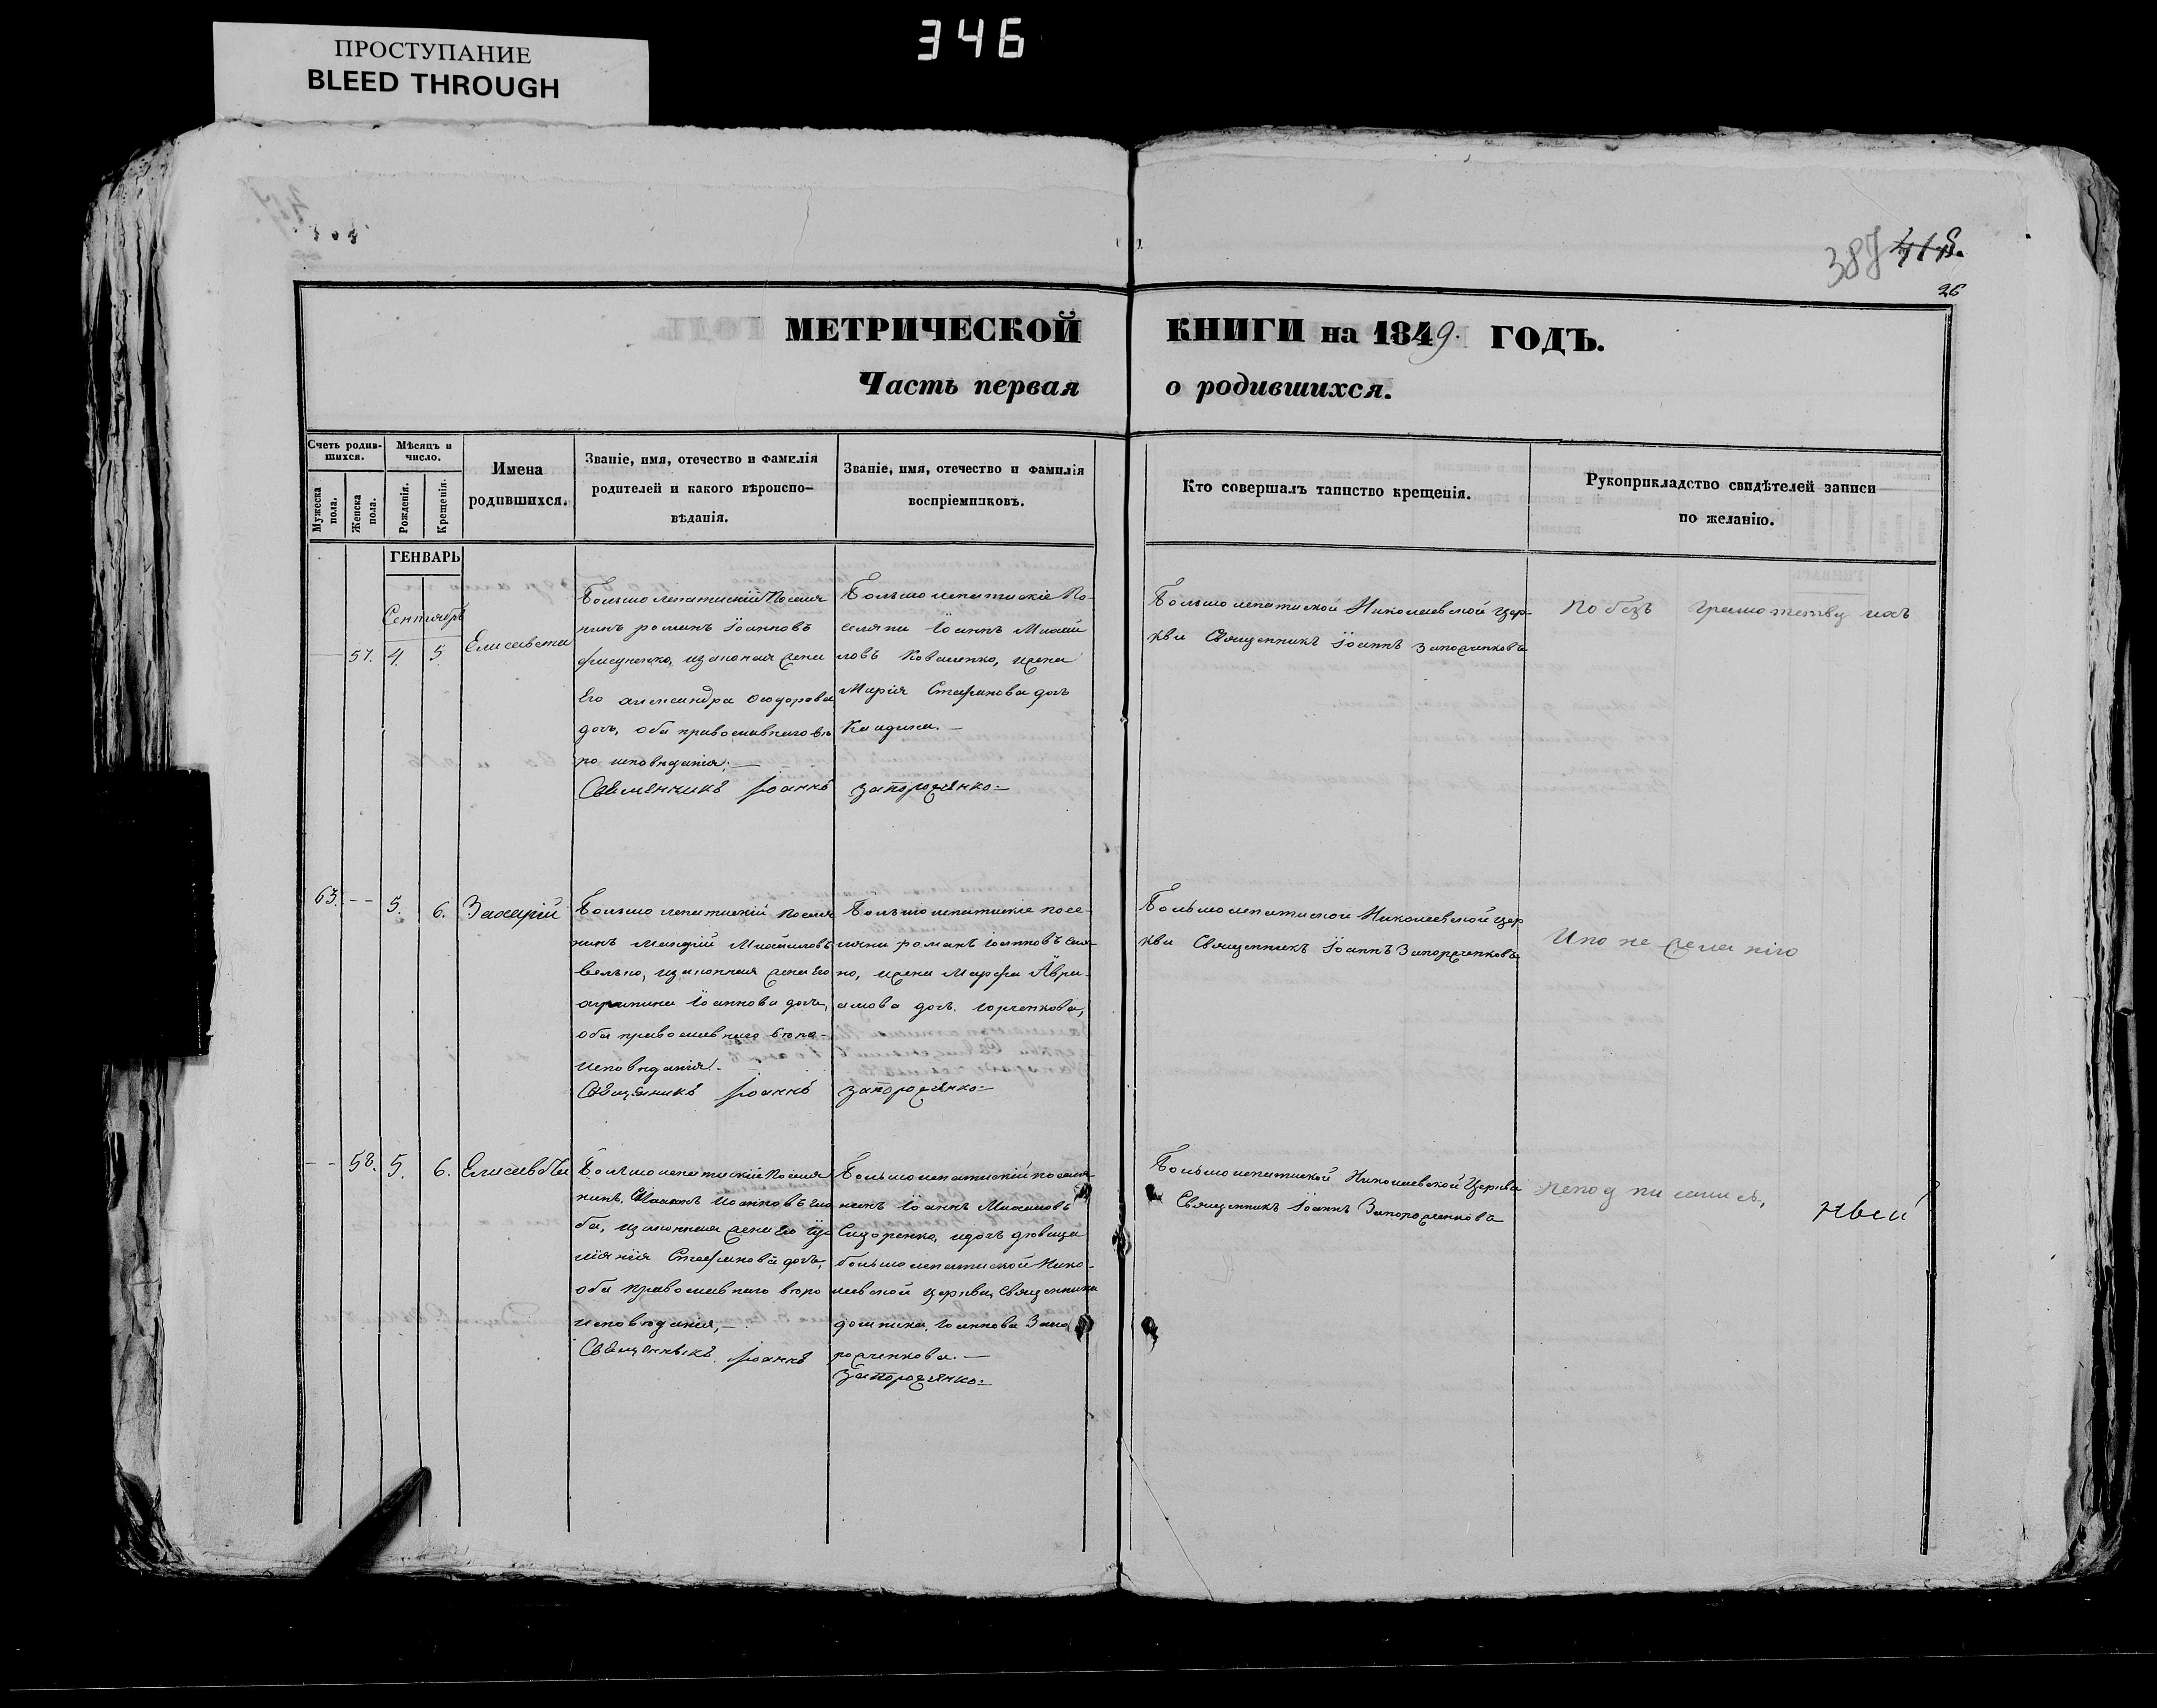 346
ПРОСТУПАНИЕ
BLEED THROUGH
387 418.
26
МЕТРИЧЕСКОЙ КНИГИ на 1849. ГОДЪ.
Часть первая о родившихся.
Счетъ родив-
шихся.
Мужеска пола.
Женска пола.
Мѣсяцъ и
число.
Рожденія.
Крещенія.
Имена
родившихся.
Званіе, имя, отечество и фамилія
родителей и какого вѣроиспо-
вѣданія.
Званіе, имя, отечество и фамилія
воспріемниковъ.
Кто совершалъ таинство крещенія.
Рукоприкладство свидѣтелей записи
по желанію.
ГЕНВАРЬ
Сентябрь
57. 4. 5. Елисавета
Большолепатискій Поселя
нинъ романъ Іоанновъ
законная жена
Его александра Ѳеодорова
дочь, оба православнаго вѣ
ро исповѣданія;—
Священникъ Іоаннъ Запороженко
Большолепатискіе По-
селяни Іоаннъ Михай
ловъ Коваленко, ижена
Марія Стефанова дочь
Большолепатиской Николаевской цер-
кви Священникъ Іоаннъ Запорженковъ
По безъ грамотству ихъ
63. -- 5. 6. Захарій
Большолепатискій поселя
нинъ Михайловъ
законная жена Его
агрипина Іоаннова дочь,
оба православнаго вѣро-
исповѣданія.-
Священникъ Іоаннъ Запороженко
Большолепатискіе посе-
ляни романъ Іоанновъ
но, ижена Марфа Авра-
амова дочь.
Большолепатиской Николаевской цер
кви Священникъ Іоаннъ Запорженковъ
Ипо не жела нію
-- 58. 5. 6. Елисавета
Большолепатискій Поселя
нинъ Іоанновъ
ба, законная жена Его Іу
ліянія Стефанова дочь,
оба православнаго вѣро
исповѣданія,—
Священникъ Іоаннъ
Большолепатискій поселя-
нинъ Іоаннъ Михайловъ
Сидоренко, идочь дѣвица
большолепатиской Нико-
лаевской церкви, Священника
домника, Іоаннова Запо
роженкова.—
Запороженко
Большолепатиской Николаевской Церкви
Священникъ Іоаннъ Запороженковъ
непод писались,